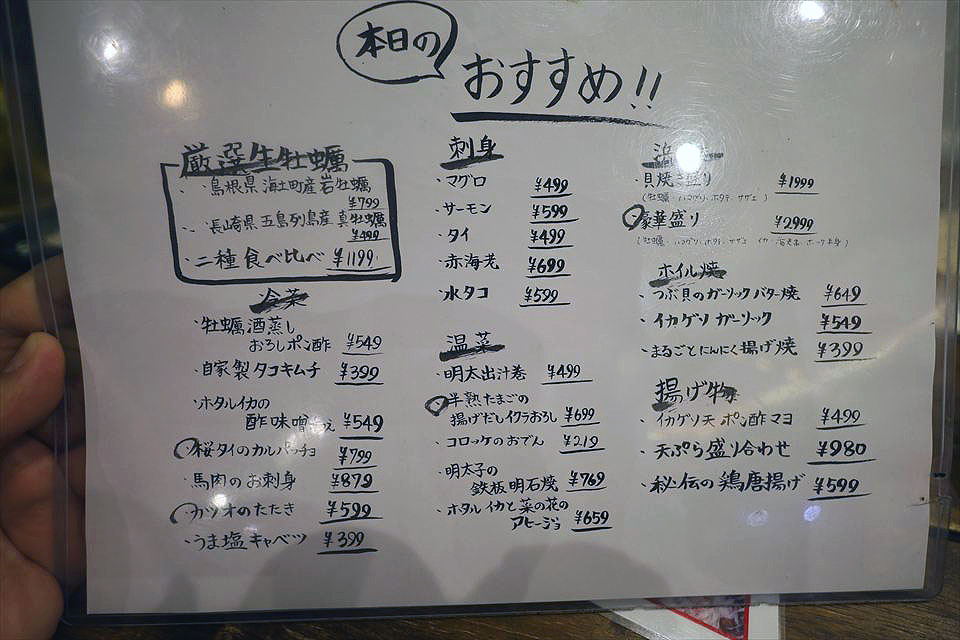 本日の
おすすめ!!
厳選生牡蠣
・島根県 海士町産岩牡蠣
¥799
・長崎県 五島列島産 真牡蠣
¥499
・二種食べ比べ ¥1199
冷菜
・牡蠣酒蒸し
おろしポン酢 ¥549
・自家製タコキムチ ¥399
・ホタルイカの
酢味噌 ¥549
・桜タイのカルパッチョ ¥799
・馬肉のお刺身 ¥879
・カツオのたたき ¥599
・うま塩キャベツ ¥399
刺身
・マグロ ¥499
・サーモン ¥599
・タイ ¥499
・赤海老 ¥699
・水タコ ¥599
温菜
・明太出汁巻 ¥499
・半熟たまごの
揚げだしイクラおろし ¥699
・コロッケのおでん ¥219
・明太子の
鉄板明石焼 ¥769
・ホタルイカと菜の花の
アヒージョ ¥659
・貝焼き盛り ¥1999
(牡蠣・ハマグリ・ホタテ・サザエ)
・豪華盛り ¥2999
(牡蠣・ハマグリ・ホタテ・サザエ イカ・海老
ホイル焼
・つぶ貝のガーリックバター焼 ¥649
・イカゲソ ガーリック ¥549
・まるごとにんにく揚げ焼 ¥399
揚げ物
・イカゲソ天 ポン酢マヨ ¥499
・天ぷら盛り合わせ ¥980
・秘伝の鶏唐揚げ ¥599